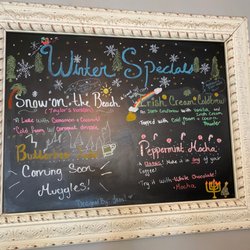 Winter Specials
Snow on the Beach
(Taylor's Version)
A Latte with Cinnamon & Coconut
Cold Foam w/ Caramel drizzle
Irish Cream Coldbrew
with Vanilla and
Topped with Cold foam & cocoa
Powder
Butterbeer
Coming
Soon
Muggles!
Peppermint Mocha
A Classic! Make it a Joy of your
Coffee!
Try it with White Chocolate!
Mocha
Designed By: